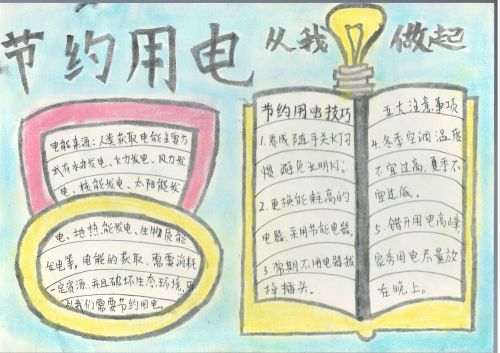 节约用电
从我做起
电能来源:人类获取电能主要方
式有水力发电、火力发电、风力发
电、核能发电、太阳能发
电、地热能发电、生物质能
发电等,电能的获取,需要消耗
一定资源,并且破坏生态环境,
我们需要节约用电。
节约用电技巧
1.养成随手关灯习
惯,避免长明灯。
2.更换能耗高的
电器,采用节能电器。
3.长期不用电器拔
掉插头。
五大注意事项
4.冬季空调温度
不宜过高,夏季不
宜过低。
5.错开用电高峰
家务用电尽量放
在晚上。